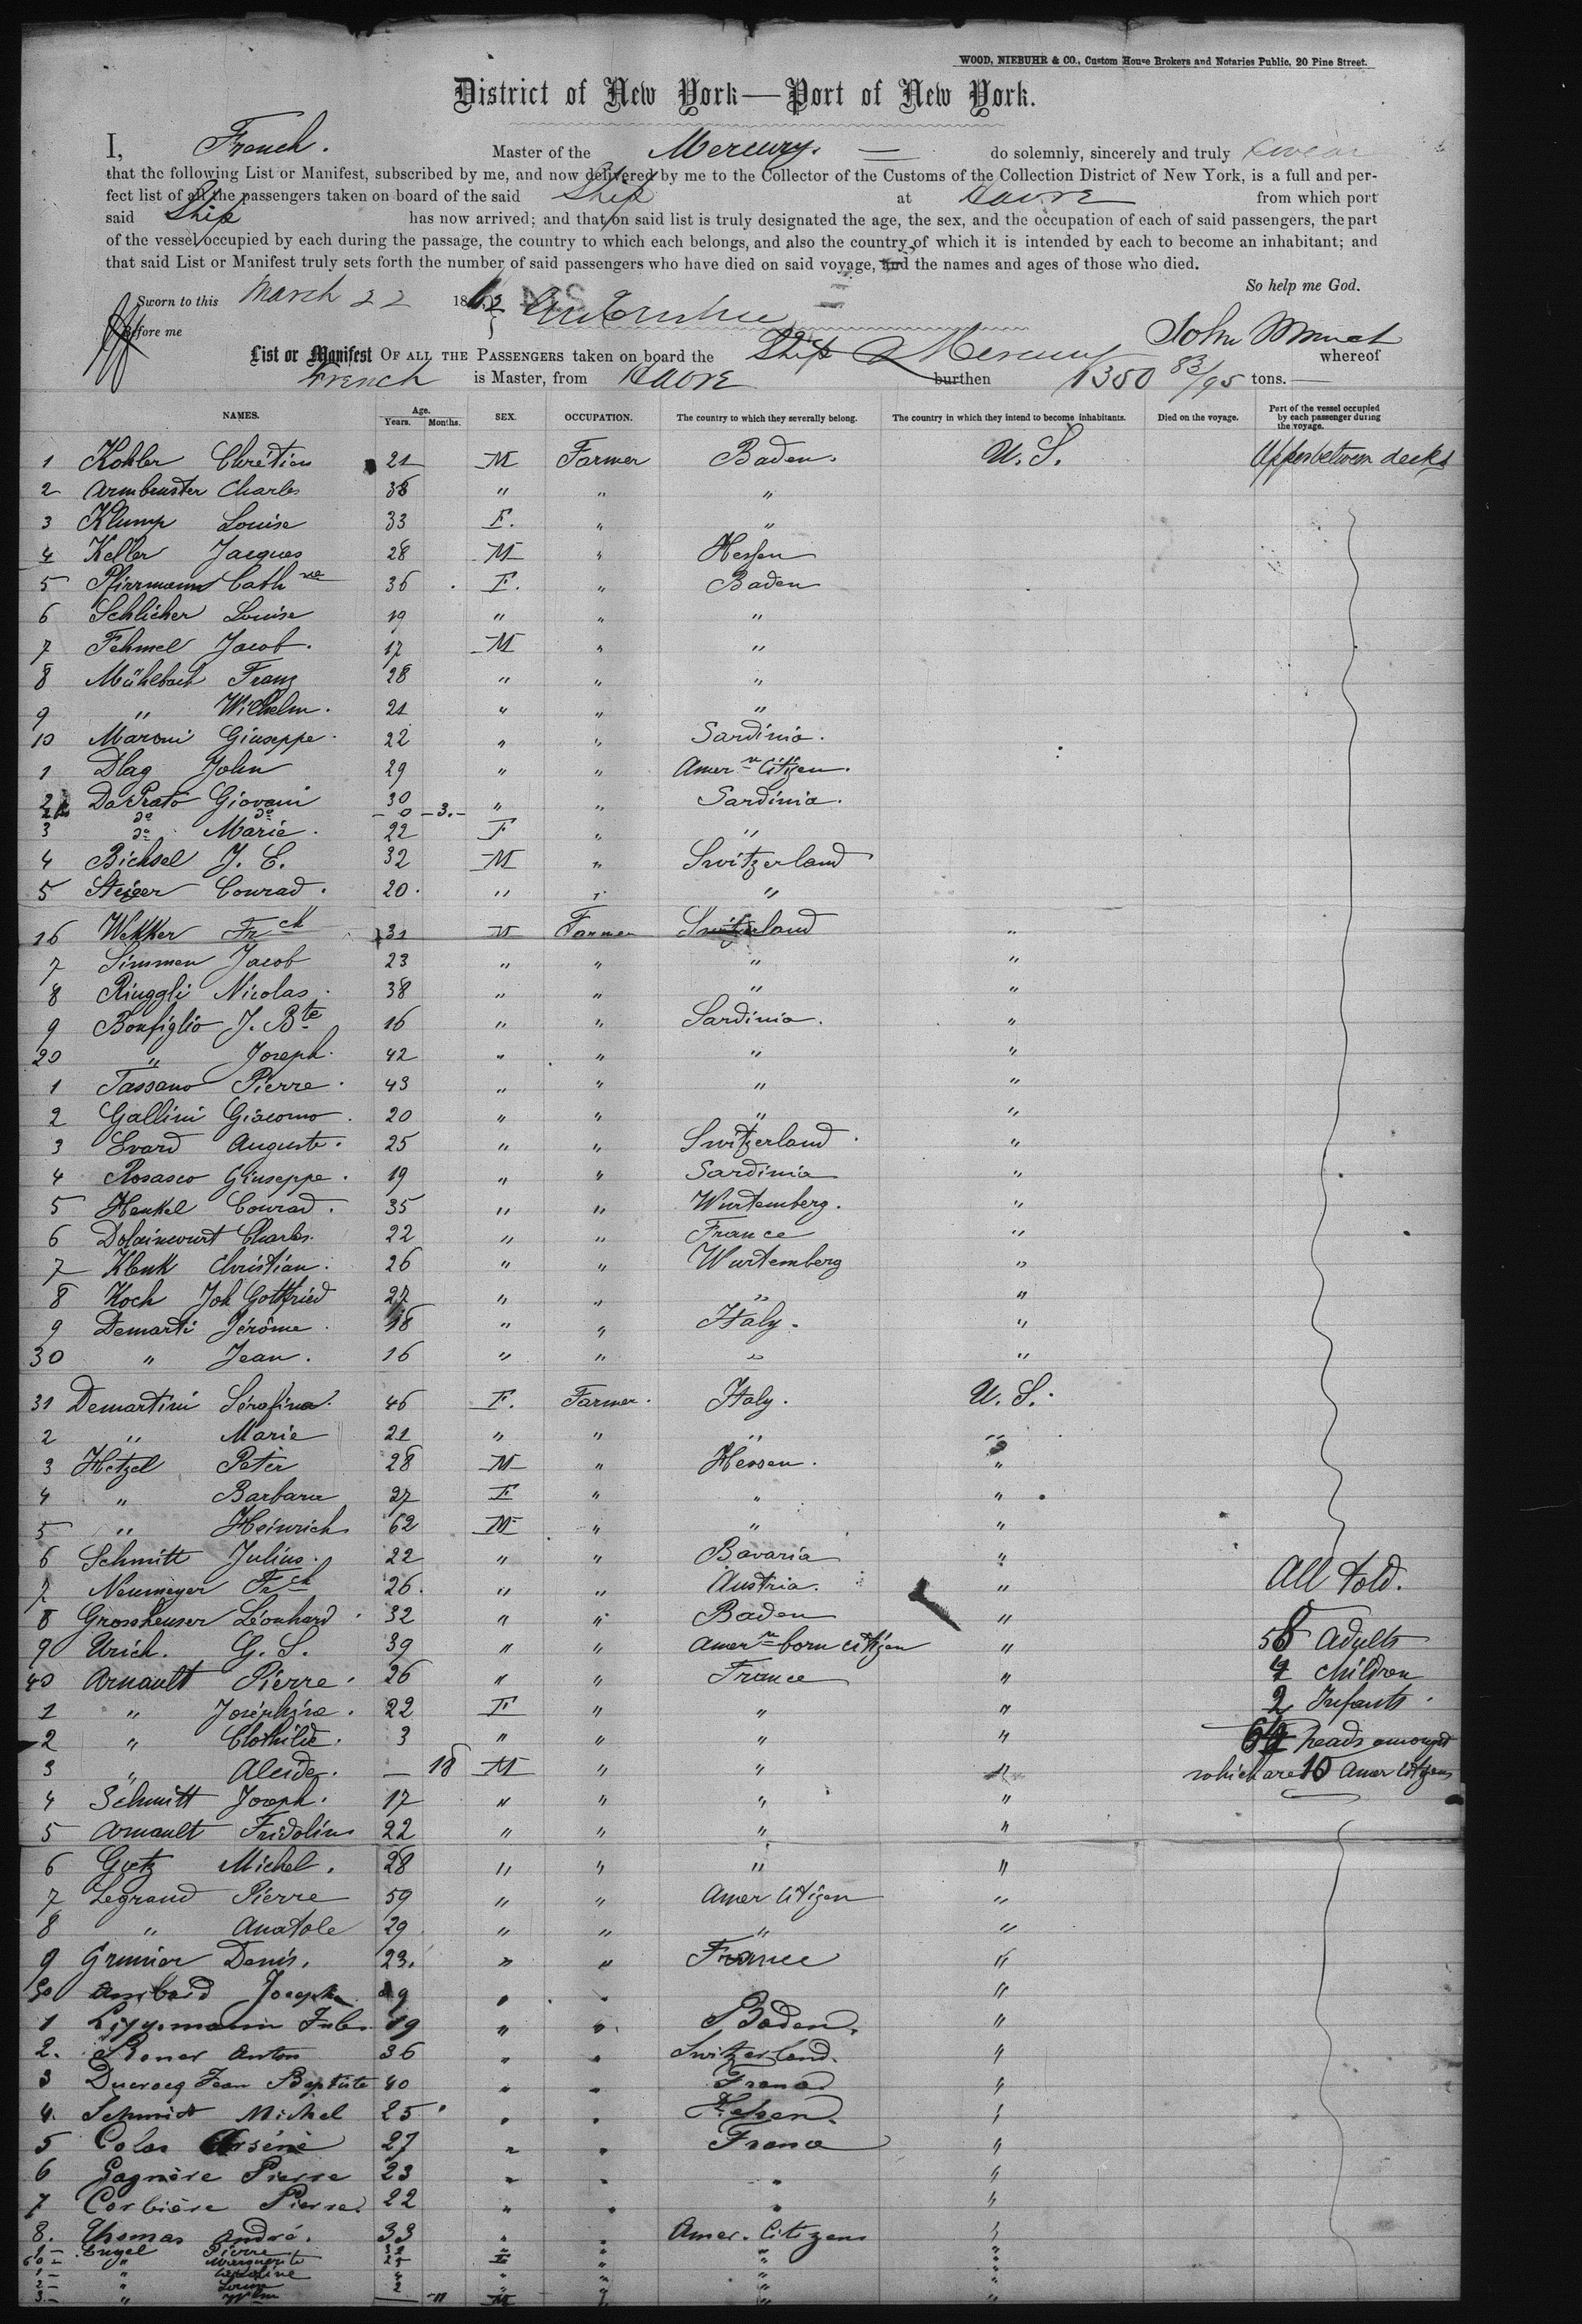 WOOD, NIEBUHR & CO., Custom House Brokers and Notaries Public, 20 Pine Street.
District of New York—Port of New York.
I, French. Master of the Mercury. do solemnly, sincerely and truly swear
that the following List or Manifest, subscribed by me, and now delivered by me to the Collector of the Customs of the Collection District of New York, is a full and per-
fect list of all the passengers taken on board of the said Ship at Havre from which port
said Ship has now arrived; and that on said list is truly designated the age, the sex, and the occupation of each of said passengers, the part
of the vessel occupied by each during the passage, the country to which each belongs, and also the country of which it is intended by each to become an inhabitant; and
that said List or Manifest truly sets forth the number of said passengers who have died on said voyage, and the names and ages of those who died.
So help me God.
Sworn to this March 22 186
Before me
List or Manifest OF ALL THE PASSENGERS taken on board the Ship Mercury whereof
French is Master, from Havre burthen 1350 83/95 tons.
NAMES. Age. Years. Months. SEX. OCCUPATION. The country to which they severally belong. The country in which they intend to become inhabitants. Died on the voyage. Part of the vessel occupied by each passenger during the voyage.
1 Kohler Chrétien 21 M Farmer Baden. U.S. Upper between decks
2 Armbruster Charles 38 " " "
3 Klump Louise 33 F. " "
4 Keller Jacques 28 M " Hessen
5 Pfirrmann Cathne 36 F. " Baden
6 Schlicher Louise 19 " " "
7 Fehmel Jacob. 17 M " "
8 Mühlbach Franz 28 " " "
9 " Wilhelm. 21 " " "
10 Maroni Giuseppe. 22 " " Sardinia.
1 Dlag John 29 " " Amern Citizen.
2 DaPrato Giovani 30 " " Sardinia.
do do 0 3.
3 do Marie. 22 F " "
4 Bichsel J. E. 32 M " Switzerland
5 Steiger Conrad. 20. " " "
16 Wekker Frch 31 M Farmer Switzerland "
7 Simmen Jacob 23 " " " "
8 Ringgli Nicolas. 38 " " " "
9 Bonfiglio J. Bte 16 " " Sardinia. "
20 " Joseph. 42 " " " "
1 Tassano Pierre. 43 " " " "
2 Gallini Giacomo. 20 " " " "
3 Evard Auguste. 25 " " Switzerland. "
4 Rosasco Giuseppe. 19 " " Sardinia "
5 Henkel Conrad. 35 " " Wurtemberg. "
6 Dolaincourt Charles. 22 " " France "
7 Klenk Christian. 26 " " Wurtemberg "
8 Koch Joh Gottfried 27 " " " "
9 Demarti Jérôme. 18 " " Italy. "
30 " Jean. 16 " " " "
31 Demartini Sérafina. 46 F. Farmer. Italy. U. S.
2 " Marie 21 " " " "
3 Hetzel Peter 28 M " Hessen. "
4 " Barbara 27 F " " "
5 " Heinrich 62 M " " "
6 Schmitt Julius. 22 " " Bavaria "
7 Neumeyer Frch 26. " " Austria. " All told.
8 Grossheuser Léonhard. 32 " " Baden "
9 Urich. G. S. 39 " " Amern born citizen " 58 Adults
40 Arnault Pierre. 26 " " France " 4 Children
1 " Joséphine. 22 F " " " 2 Infants.
2 " Clothilde. 3 " " " " 64 heads amongst
3 " Alcide. — 18 M " " " which are 10 Amer Citizens
4 Schmitt Joseph. 17 " " " "
5 Arnault Fridolin 22 " " " "
6 Goetz Michel. 28 " " " "
7 Legrand Pierre 59 " " Amer Citizen "
8 " Anatole 29 " " " "
9 Grunior Denis. 23. " " France "
50 Joseph " " "
1 Jules 19 " " Baden. "
2. Anton 36 " " Switzerland. "
3 Ducrocq Jean Baptiste 40 " " France "
4. Schmidt Michel 25 " " Hessen. "
5 Colas Arséne 27 " " France "
6 Gagnère Pierre 23 " " " "
7 Corbière Pierre. 22 " " " "
8. Thomas André. 33 " " Amer. Citizens "
9 Engel Pierre 32 " " " "
60 " Marguerite 25 F " " "
1 " Caroline 4 " " " "
2 " Louise 2 " " " "
3 " — 11 M " " "